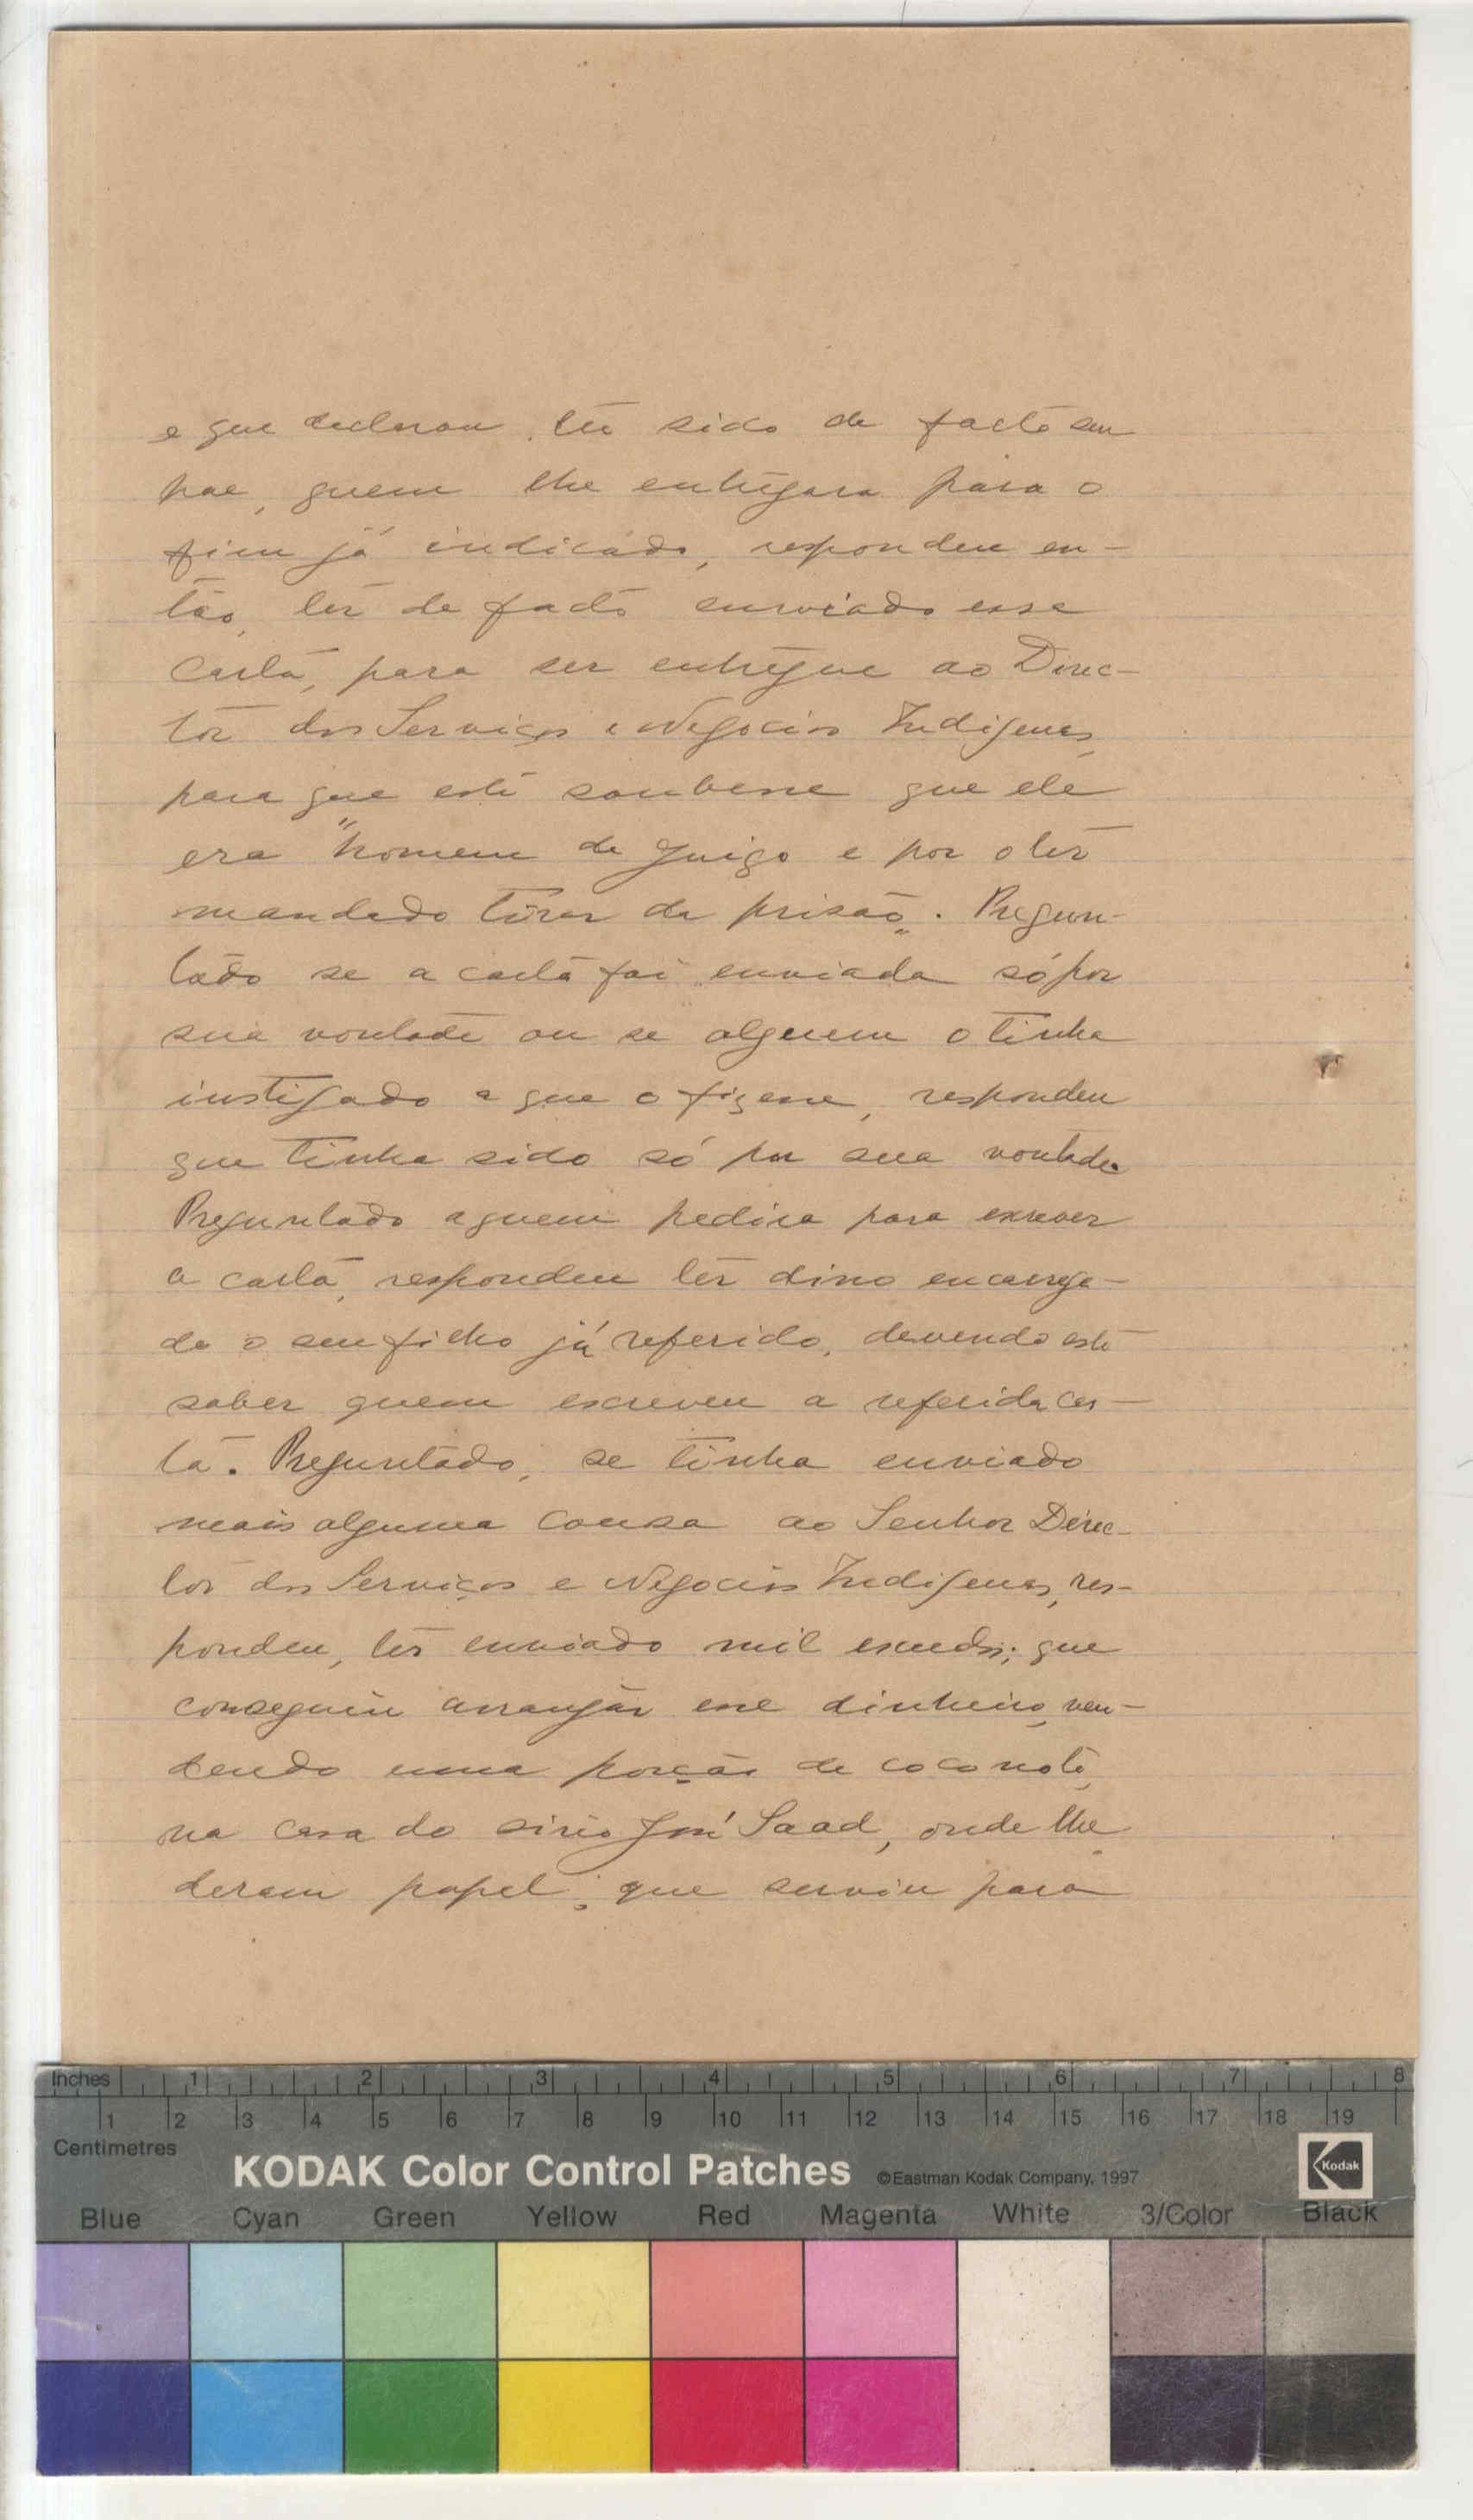 e que declarou, ter sido de facto seu
pae, quem lhe entregara para o
fim já indicado, respondeu en-
tão, ter de facto enviado essa
carta, para ser entregue ao Direc-
tor dos Serviços e Negocios Indigenas,
para que este soubesse que ele
era "homem de juigo e por o ter
mandado tirar da prisão". Pregun-
tado se a carta foi enviada só por
sua vontade ou se alguem o tinha
instigado a que o fizesse, respondeu
que tinha sido só por sua vontade.
Preguntado a quem pedira para escrever
a carta, respondeu ter disso encarrega-
do o seu filho já referido, devendo este
saber quem escreveu a referida car-
ta. Preguntado, se tinha enviado
mais alguma cousa ao Senhor Direc-
tor dos Serviços e Negocios Indigenas, res-
pondeu, ter enviado mil escudos; que
conseguiu arranjar esse dinheiro, ven-
dendo uma porção de coconote,
na casa do sirio José Saad, onde lhe
deram papel; que serviu para
Inches 1 2 3 4 5 6 7 8
1 2 3 4 5 6 7 8 9 10 11 12 13 14 15 16 17 18 19
Centimetres
KODAK Color Control Patches ©Eastman Kodak Company, 1997 Kodak
Blue Cyan Green Yellow Red Magenta White 3/Color Black